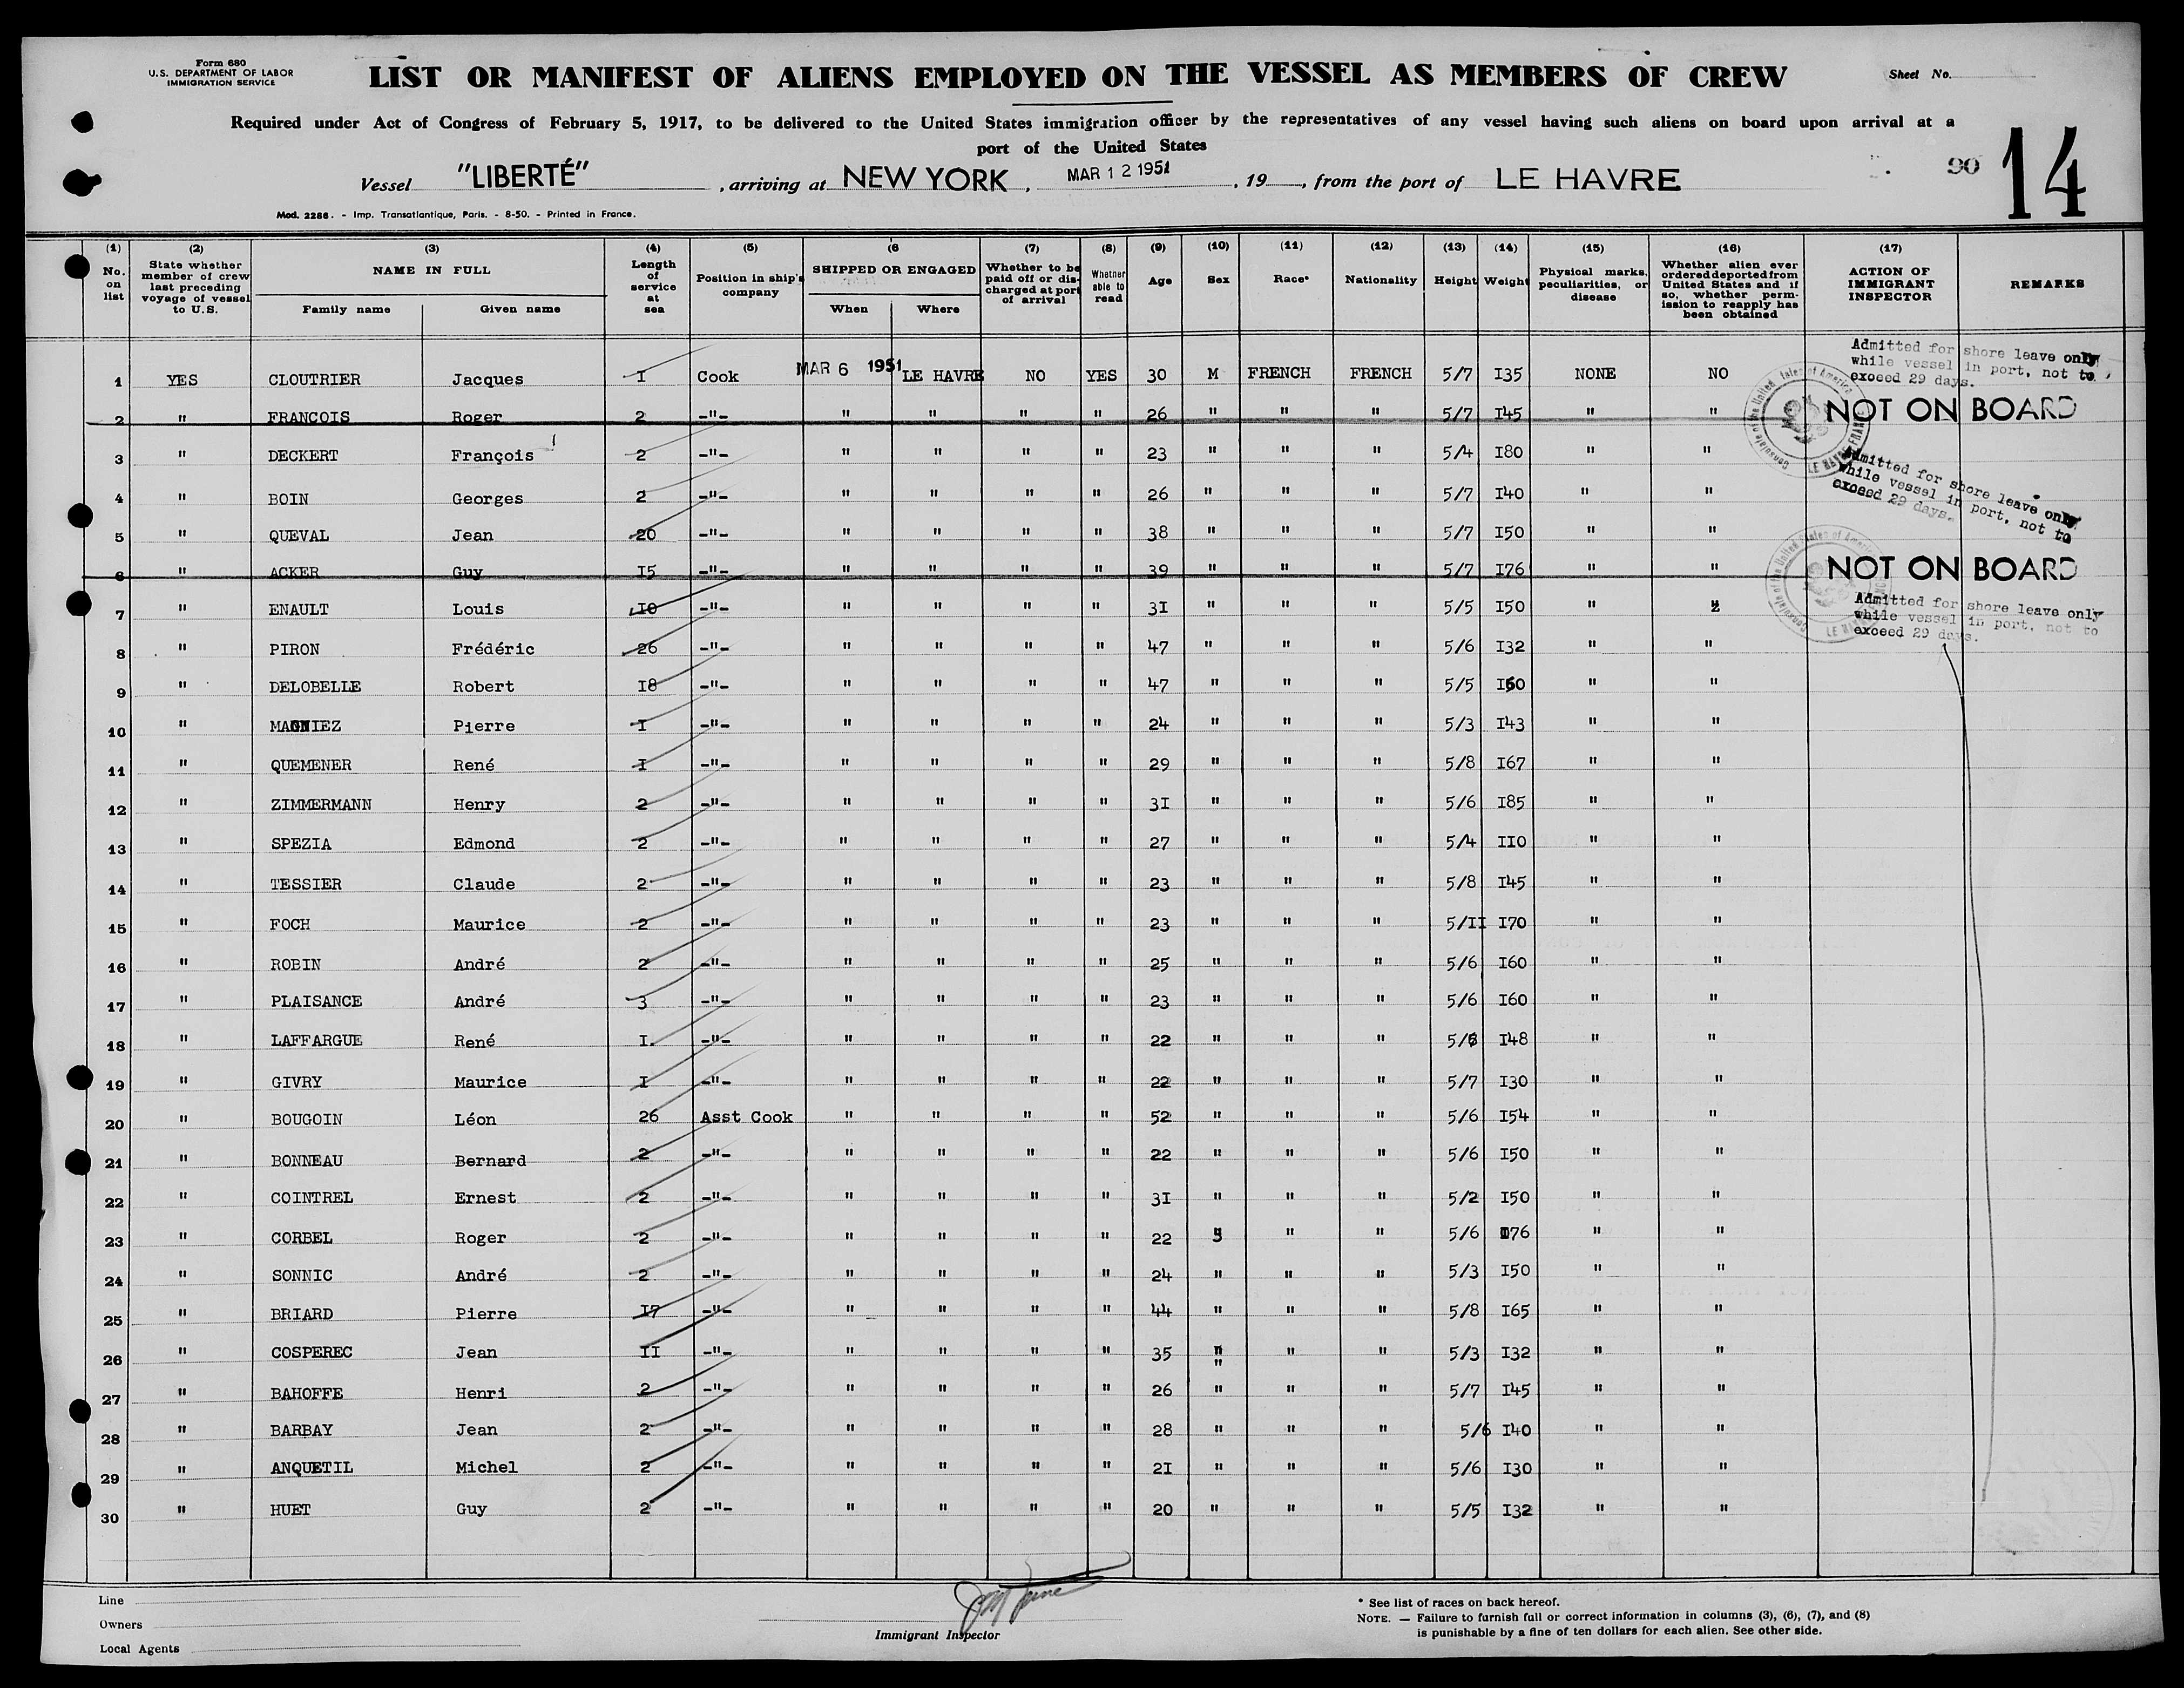 Form 680
U.S. DEPARTMENT OF LABOR
IMMIGRATION SERVICE
LIST OR MANIFEST OF ALIENS EMPLOYED ON THE VESSEL AS MEMBERS OF CREW
Sheet No.
Required under Act of Congress of February 5, 1917, to be delivered to the United States immigration officer by the representatives of any vessel having such aliens on board upon arrival at a
port of the United States
90 14
Vessel "LIBERTÉ", arriving at NEW YORK, MAR 12 1951, 19, from the port of LE HAVRE
Mod. 2286. - Imp. Transatlantique, Paris. - 8-50. - Printed in France.
(1) (2) (3) (4) (5) (6 (7) (8) (9) (10) (11) (12) (13) (14) (15) (16) (17)
No. on list
State whether member of crew last preceding voyage of vessel to U.S.
NAME IN FULL
Family name Given name
Length of service at sea
Position in ship's company
SHIPPED OR ENGAGED
When Where
Whether to be paid off or discharged at port of arrival
Whether able to read
Age
Sex
Race*
Nationality
Height
Weight
Physical marks, peculiarities, or disease
Whether alien ever ordered deported from United States and if so, whether permission to reapply has been obtained
ACTION OF IMMIGRANT INSPECTOR
REMARKS
Admitted for shore leave only
while vessel in port, not to
exceed 29 days.
1 YES CLOUTRIER Jacques I Cook MAR 6 1951 LE HAVRE NO YES 30 M FRENCH FRENCH 5/7 I35 NONE NO
2 " FRANCOIS Roger 2 -"- " " " " 26 " " " 5/7 I45 " " NOT ON BOARD
3 " DECKERT François 2 -"- " " " " 23 " " " 5/4 I80 " "
Admitted for shore leave only
while vessel in port, not to
exceed 29 days.
4 " BOIN Georges 2 -"- " " " " 26 " " " 5/7 I40 " "
5 " QUEVAL Jean 20 -"- " " " " 38 " " " 5/7 I50 " "
6 " ACKER Guy I5 -"- " " " " 39 " " " 5/7 I76 " " NOT ON BOARD
7 " ENAULT Louis I0 -"- " " " " 3I " " " 5/5 I50 " "
Admitted for shore leave only
while vessel in port, not to
exceed 29 days.
8 " PIRON Frédéric 26 -"- " " " " 47 " " " 5/6 I32 " "
9 " DELOBELLE Robert I8 -"- " " " " 47 " " " 5/5 I60 " "
10 " MAGNIEZ Pierre I -"- " " " " 24 " " " 5/3 I43 " "
11 " QUEMENER René I -"- " " " " 29 " " " 5/8 I67 " "
12 " ZIMMERMANN Henry 2 -"- " " " " 3I " " " 5/6 I85 " "
13 " SPEZIA Edmond 2 -"- " " " " 27 " " " 5/4 II0 " "
14 " TESSIER Claude 2 -"- " " " " 23 " " " 5/8 I45 " "
15 " FOCH Maurice 2 -"- " " " " 23 " " " 5/II I70 " "
16 " ROBIN André 2 -"- " " " " 25 " " " 5/6 I60 " "
17 " PLAISANCE André 3 -"- " " " " 23 " " " 5/6 I60 " "
18 " LAFFARGUE René I -"- " " " " 22 " " " I48 " "
19 " GIVRY Maurice I -"- " " " " 22 " " " 5/7 I30 " "
20 " BOUGOIN Léon 26 Asst Cook " " " " 52 " " " 5/6 I54 " "
21 " BONNEAU Bernard 2 -"- " " " " 22 " " " 5/6 I50 " "
22 " COINTREL Ernest 2 -"- " " " " 3I " " " 5/2 I50 " "
23 " CORBEL Roger 2 -"- " " " " 22 " " 5/6 I76 " "
24 " SONNIC André 2 -"- " " " " 24 " " " 5/3 I50 " "
25 " BRIARD Pierre I7 -"- " " " " 44 " " " 5/8 I65 " "
26 " COSPEREC Jean II -"- " " " " 35 " " " 5/3 I32 " "
27 " BAHOFFE Henri 2 -"- " " " " 26 " " " 5/7 I45 " "
28 " BARBAY Jean 2 -"- " " " " 28 " " " 5/6 I40 " "
29 " ANQUETIL Michel 2 -"- " " " " 2I " " " 5/6 I30 " "
30 " HUET Guy 2 -"- " " " " 20 " " " 5/5 I32 " "
Line
Owners
Local Agents
Immigrant Inspector
* See list of races on back hereof.
NOTE. — Failure to furnish full or correct information in columns (3), (6), (7), and (8)
is punishable by a fine of ten dollars for each alien. See other side.